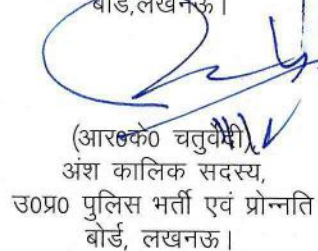 बोर्ड,लखनऊ।
(आर०के० चतुर्वेदी)
अंश कालिक सदस्य,
उ०प्र० पुलिस भर्ती एवं प्रोन्नति
बोर्ड, लखनऊ।